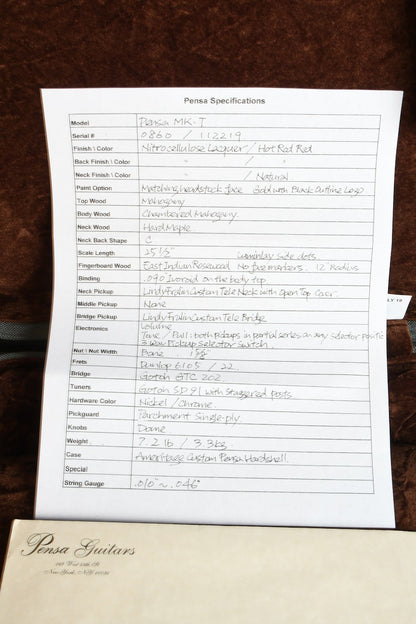 Pensa Specifications
Model Pensa MK-T
Serial # 0860 / 112219
Finish \ Color Nitrocellulose Lacquer / Hot Rod Red
Back Finish \ Color " / "
Neck Finish \ Color " / Natural
Paint Option Matching headstock face Gold with Black Outline Logo
Top Wood Mahogany
Body Wood Chambered Mahogany
Neck Wood Hard Maple
Neck Back Shape C
Scale Length 25 1/2" Luminlay side dots
Fingerboard Wood East Indian Rosewood No face markers. 12" Radius
Binding .090 Ivoroid on the body top
Neck Pickup Lindy Fralin Custom Tele Neck with Open Top Cover
Middle Pickup None
Bridge Pickup Lindy Fralin Custom Tele Bridge
Electronics Volume
Tone / Pull: both pickups in partial series on any selector positio
3 way Pickup selector switch
Nut \ Nut Width Bone
Frets Dunlop 6105 / 22
Bridge Gotoh GTC 202
Tuners Gotoh SD91 with Staggered posts
Hardware Color Nickel / Chrome
Pickguard Parchment Single-ply
Knobs Dome
Weight 7.2 lb / 3.3 kg
Case Ameritage Custom Pensa Hardshell
Special
String Gauge .010" ~ .046"
LY 10
Pensa Guitars
New York, NY